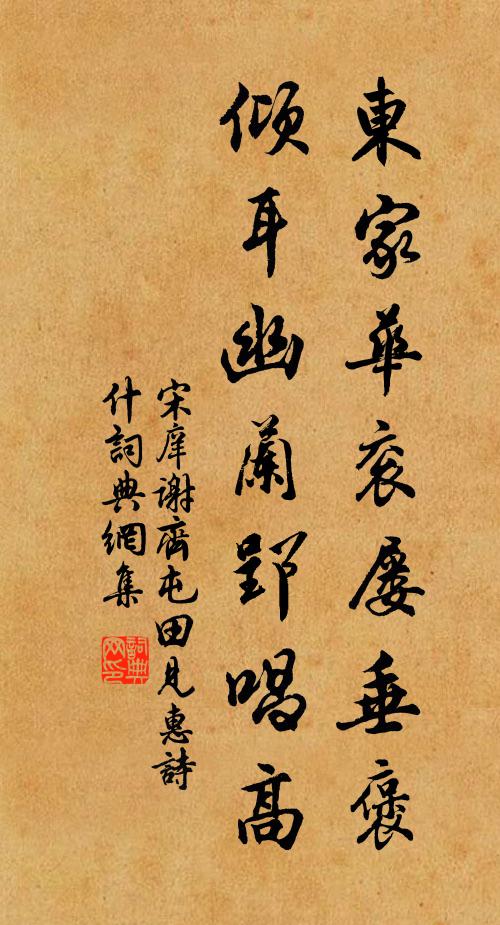 東家華衮屢垂褒
傾耳幽蘭郢唱高
宋庠謝齊屯田見惠詩
什詞典網集
詞典網印